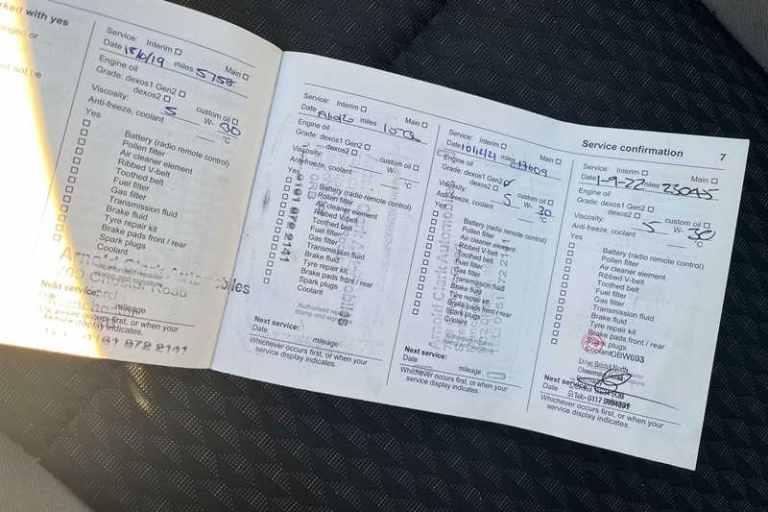 rked with yes
Service: Interim □
Date 18/10/19 miles 5758 Main □
Engine oil
Grade: dexos1 Gen2 □
dexos2 □ custom oil □
Viscosity: 5 W- 30
Anti-freeze, coolant °C
Yes
□ Battery (radio remote control)
□ Pollen filter
□ Air cleaner element
□ Ribbed V-belt
□ Toothed belt
□ Fuel filter
□ Gas filter
□ Transmission fluid
□ Brake fluid
□ Tyre repair kit
□ Brake pads front / rear
□ Spark plugs
□ Coolant
Arnold Clark Automobiles
Road
Next service: mileage
Whichever occurs first, or when your
service display indicates.
0161 872 2141
Service: Interim □
Date miles Main □
Engine oil
Grade: dexos1 Gen2 □
dexos2 □ custom oil □
Viscosity: W-
Anti-freeze, coolant °C
Yes
□ Battery (radio remote control)
□ Pollen filter
□ Air cleaner element
□ Ribbed V-belt
□ Toothed belt
□ Fuel filter
□ Gas filter
□ Transmission fluid
□ Brake fluid
□ Tyre repair kit
□ Brake pads front / rear
□ Spark plugs
□ Coolant
0161 872 2141
Next service:
Date mileage
Whichever occurs first, or when your
service display indicates.
Service: Interim □
Date miles Main □
Engine oil
Grade: dexos1 Gen2 ✓
dexos2 □ custom oil □
Viscosity: 5 W- 30
Anti-freeze, coolant °C
Yes
□ Battery (radio remote control)
□ Pollen filter
□ Air cleaner element
□ Ribbed V-belt
□ Toothed belt
□ Fuel filter
□ Gas filter
□ Transmission fluid
□ Brake fluid
□ Tyre repair kit
□ Brake pads front / rear
□ Spark plugs
□ Coolant
Arnold Clark Automobiles
Next service:
Date mileage
Whichever occurs first, or when your
service display indicates.
Service confirmation 7
Service: Interim □
Date 1-9-22 miles 23045 Main □
Engine oil
Grade: dexos1 Gen2 □
dexos2 □ custom oil □
Viscosity: 5 W- 30
Anti-freeze, coolant °C
Yes
□ Battery (radio remote control)
□ Pollen filter
□ Air cleaner element
□ Ribbed V-belt
□ Toothed belt
□ Fuel filter
□ Gas filter
□ Transmission fluid
□ Brake fluid
□ Tyre repair kit
□ Brake pads front / rear
□ Spark plugs
□ Coolant
Next service:
Date
Whichever occurs first, or when your
service display indicates.